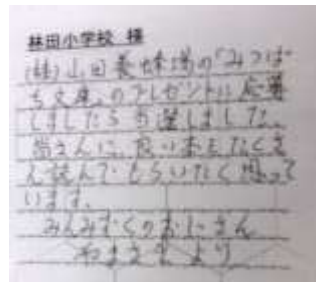 林田小学校 様
(株)山田養蜂場の「みつば
ち文庫」のプレゼントに応募
しましたら当選しました。
皆さんに、良い本をたくさ
ん読んでもらいたく思って
います。
みみずくのおじさん
やまさきより